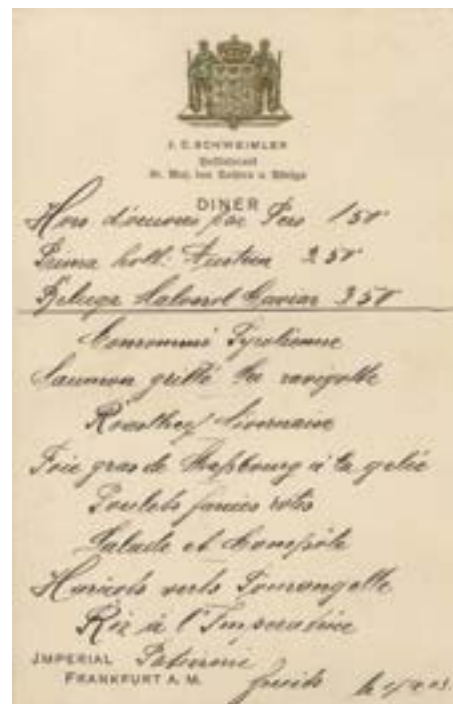 J. C. SCHWEIMLER
Hoflieferant
Sr. Maj. des Kaisers u. Königs
DINER
Hors d'oeuvres par Pers 1 50
Prima holl. Austern 2 50
Beluga Malossol Caviar 3 50
Consommé Tyrolienne
Saumon grillé sce ravigotte
Roastbeef Nivernaise
Foie gras de Strassbourg à la gelée
Poulets farcies rotis
Salade et Compôte
Haricots verts Tourangelle
Riz à l'Imperatrice
JMPERIAL Patisserie
FRANKFURT A. M. fruits